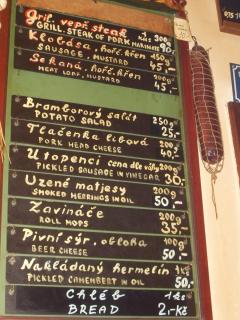 Gril. vepř. steak 1 ks 300g
GRILL. STEAK OF PORK MARINATE 90,-
Klobása, hořč. křen 150g
SAUSAGE, MUSTARD 45,-
Sekaná, hořč. křen 200g
MEAT LOAF, MUSTARD 45,-
Bramborový salát 250g
POTATO SALAD 25,-
Tlačenka libová 200g
PORK HEAD CHEESE 40,-
Utopenci cena dle váhy 200g
PICKLED SAUSAGE IN VINEGAR 30,-
Uzené matjesy 200g
SMOKED HERRINGS IN OIL 50,-
Zavináče 200g
ROLL MOPS 35,-
Pivní sýr, obloha 100g
BEER CHEESE 50,-
Nakládaný hermelín 1ks
PICKLED CAMEMBERT IN OIL 50,-
Chléb 1ks
BREAD 2,-Kč